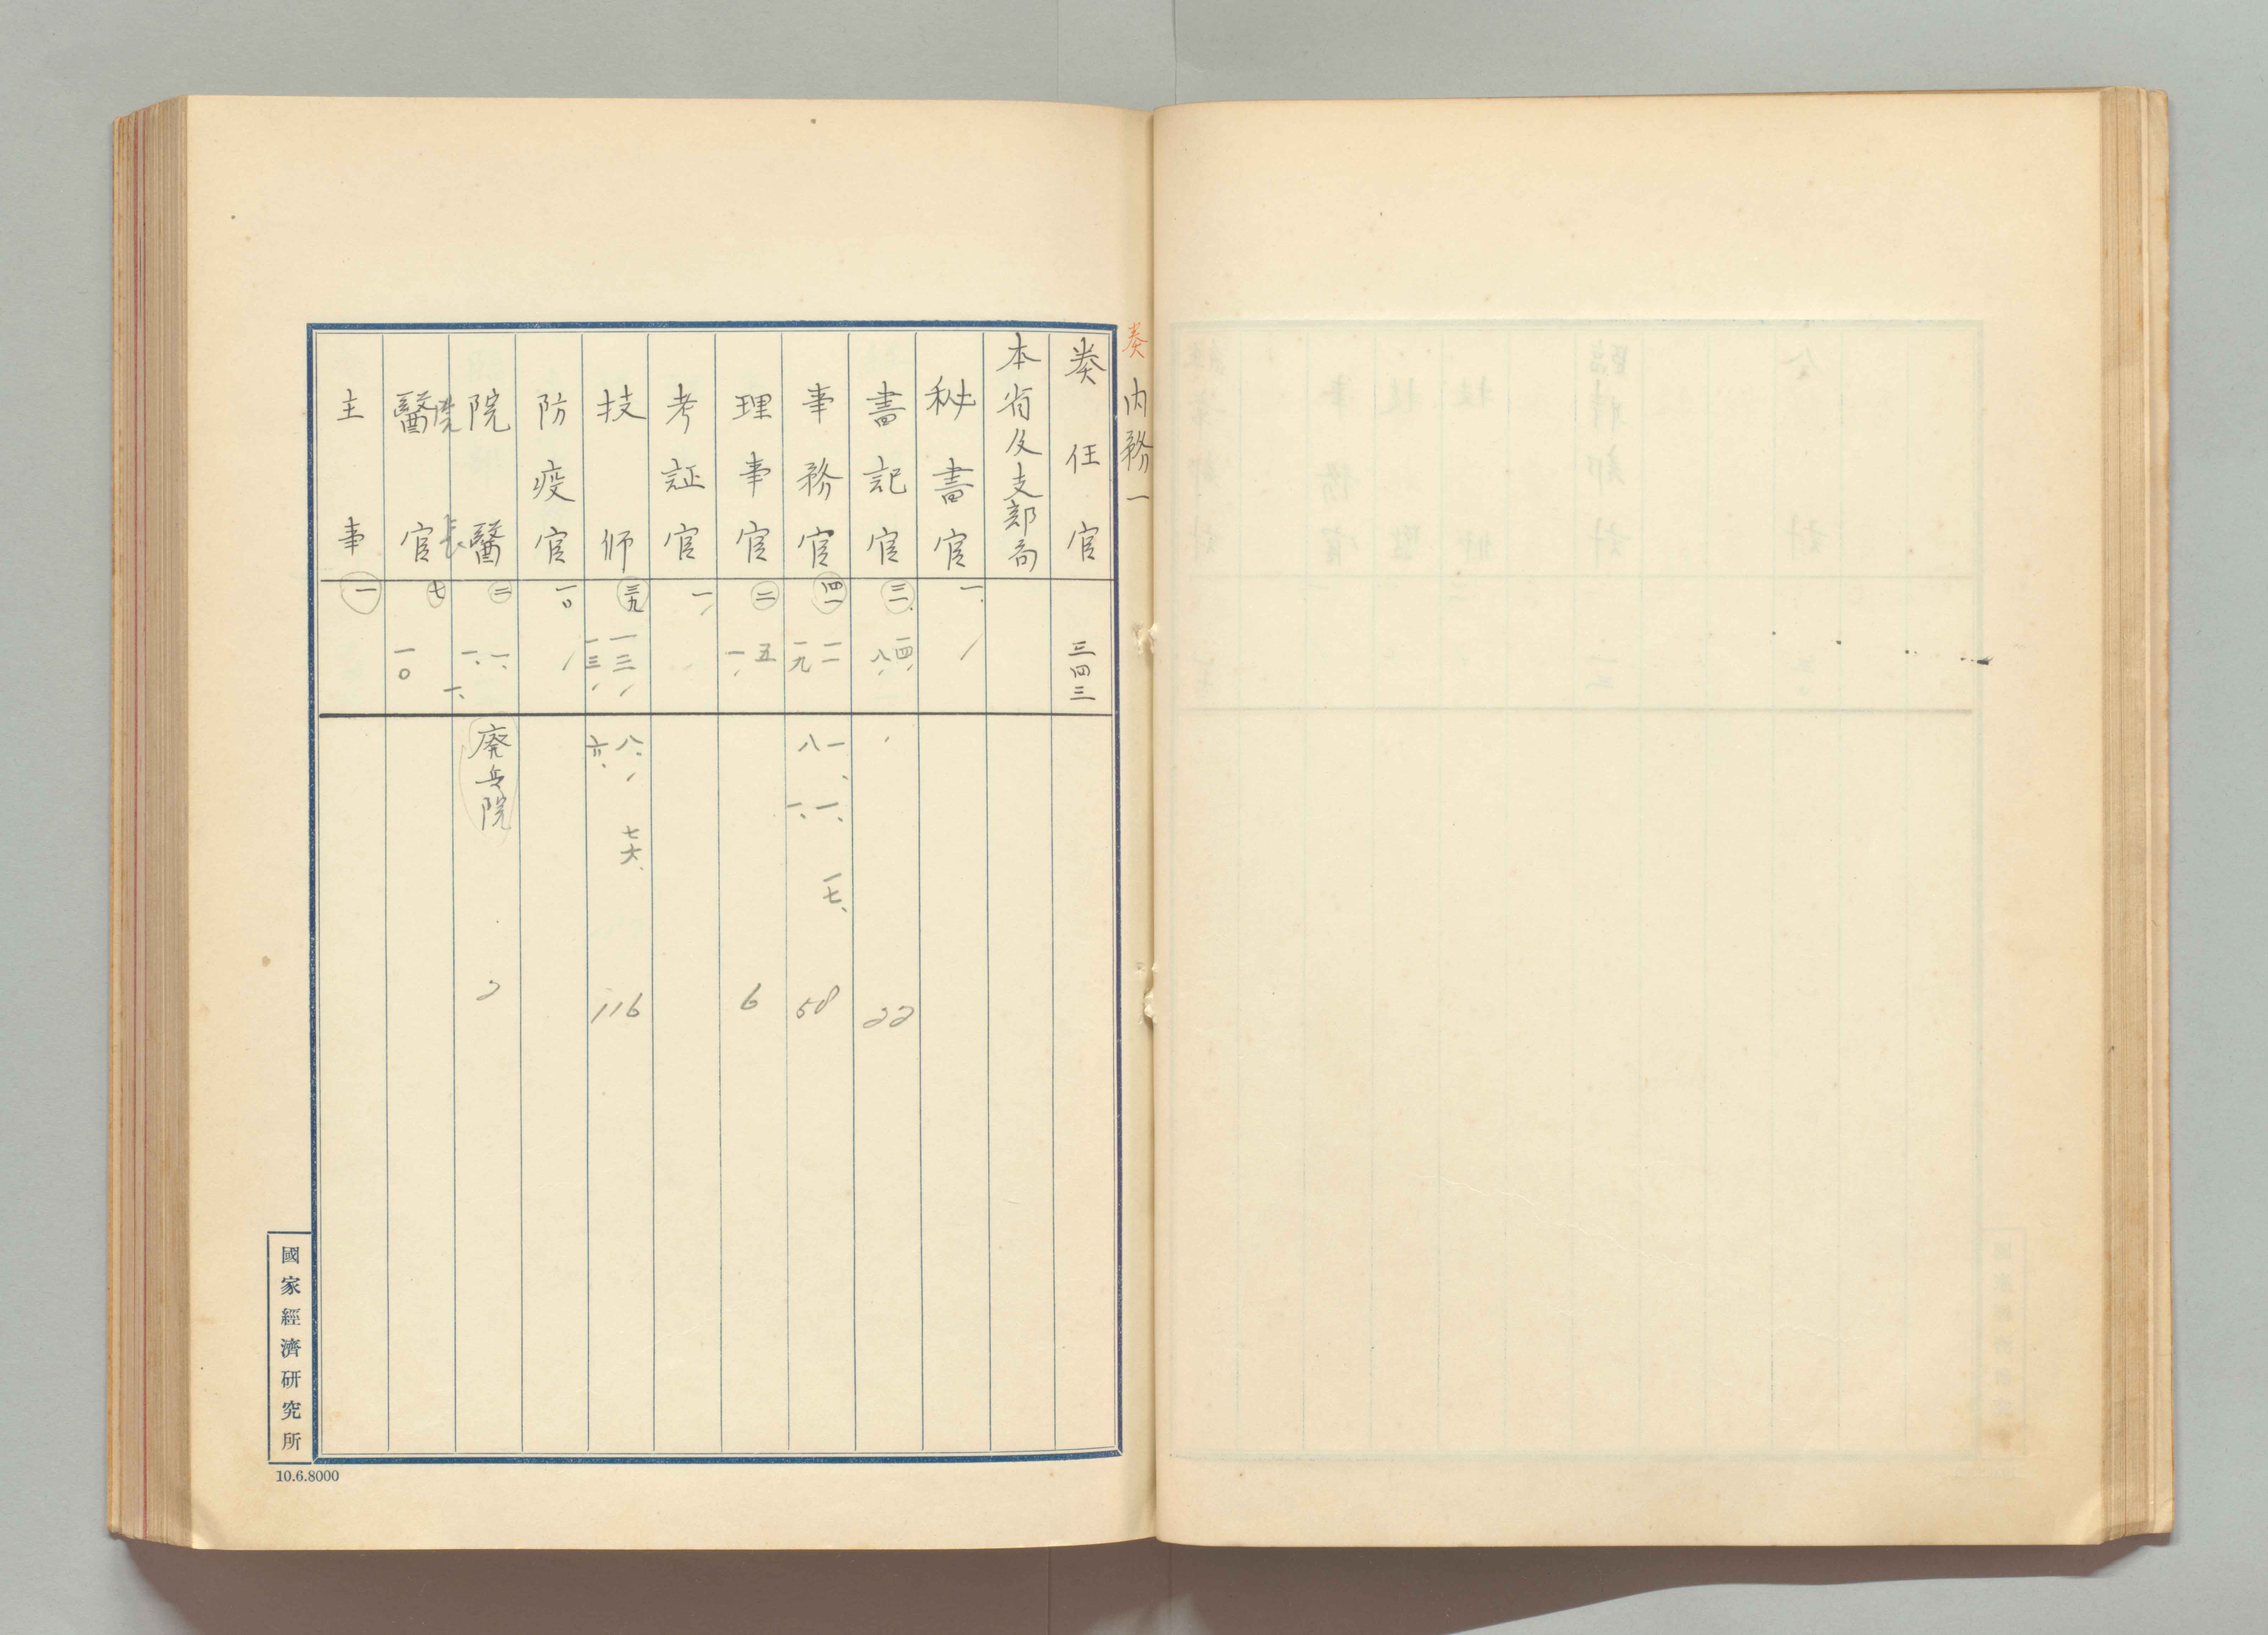 奏
内務一
奏任官 三四三
本省及支部局
秘書官 一
書記官 三 一四 八 22
事務官 四一 二一 一九 一八 一 一 一七 58
理事官 二 五 一 6
考証官 一
技師 三九 一三 一三 八 六 七六 116
防疫官 一〇
院醫 二 一 一 廃兵院 2
院長 一
醫官 七 一〇
主事 一
國家經濟研究所
10.6.8000